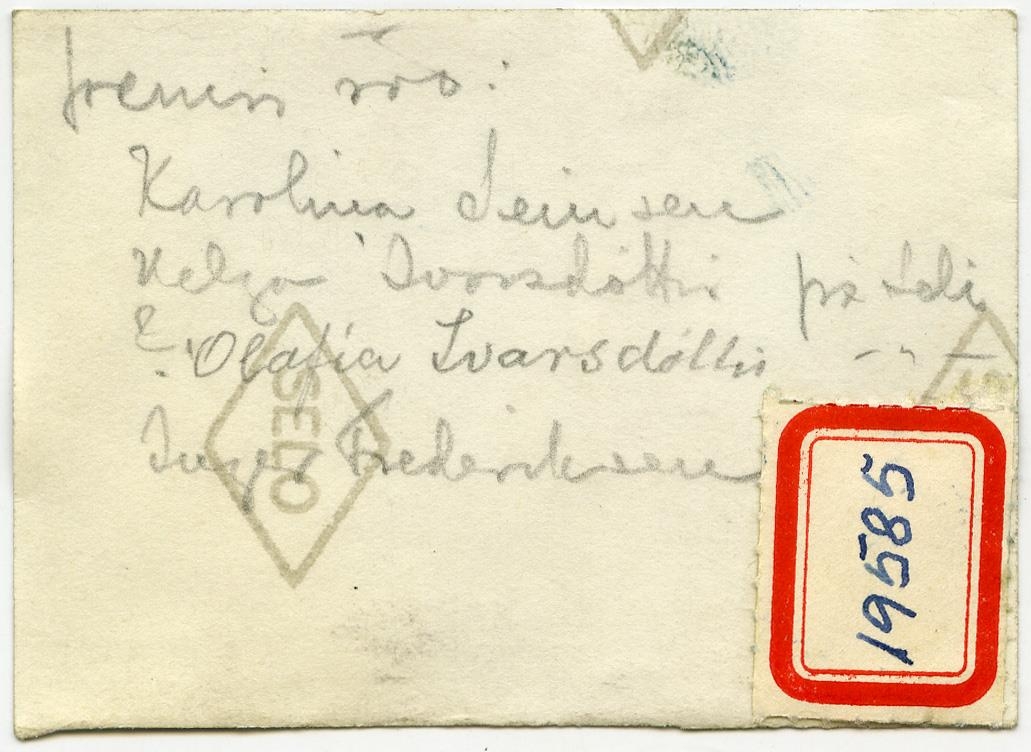 fremri röð:
Karolína Seimsen
Helga Ívarsdóttir frá
? Ólafía Ívarsdóttir — " —
Inger Frederiksen
SELO
19585